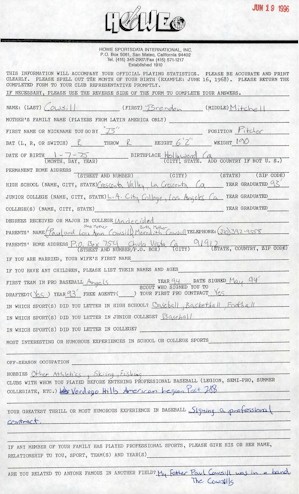 JUN 19 1996
HOWE
HOWE SPORTSDATA INTERNATIONAL, INC.
Established 1910
THIS INFORMATION WILL ACCOMPANY YOUR OFFICIAL PLAYING STATISTICS. PLEASE BE ACCURATE AND PRINT
CLEARLY. PLEASE SPELL OUT THE MONTH OF YOUR BIRTH (EXAMPLE: JUNE 16, 1968). PLEASE RETURN THE
COMPLETED FORM TO YOUR CLUB REPRESENTATIVE PROMPTLY.
IF NECESSARY, PLEASE USE THE REVERSE SIDE OF THE FORM TO COMPLETE YOUR ANSWERS.
NAME: (LAST) Cowsill (FIRST) Brendon (MIDDLE) Mitchell
MOTHER'S FAMILY NAME (PLAYERS FROM LATIN AMERICA ONLY)
FIRST NAME OR NICKNAME YOU GO BY POSITION Pitcher
BAT (L, R, OR SWITCH) R THROW R HEIGHT 6'2" WEIGHT
DATE OF BIRTH 1-7-75 BIRTHPLACE Hollywood Ca
(MONTH, DAY, YEAR) (CITY, STATE. ADD COUNTRY IF NOT U.S.)
PERMANENT HOME ADDRESS
(STREET AND NUMBER) (CITY) (STATE) (ZIP CODE)
HIGH SCHOOL (NAME, CITY, STATE) Crescenta Valley, La Crescenta Ca YEAR GRADUATED 93
JUNIOR COLLEGE (NAME, CITY, STATE) L.A. City College, Los Angeles Ca YEAR GRADUATED
COLLEGE(S) (NAME, CITY, STATE) YEAR GRADUATED
DEGREES RECEIVED OR MAJOR IN COLLEGE Undecided
PARENTS' NAME TELEPHONE
PARENTS' HOME ADDRESS P.O. Box Chula Vista Ca
(STREET AND NUMBER/P.O. BOX) (CITY) (STATE, COUNTRY, ZIP CODE)
IF YOU ARE MARRIED, YOUR WIFE'S FIRST NAME
IF YOU HAVE ANY CHILDREN, PLEASE LIST THEIR NAMES AND AGES
FIRST TEAM IN PRO BASEBALL Angels YEAR 94 DATE SIGNED May, 94
SCOUT WHO SIGNED YOU TO
DRAFTED (YES) YEAR 93 FREE AGENT( ) YOUR FIRST PRO CONTRACT Yes
IN WHICH SPORT(S) DID YOU LETTER IN HIGH SCHOOL? Baseball, Basketball, Football
IN WHICH SPORT(S) DID YOU LETTER IN JUNIOR COLLEGE? Baseball
IN WHICH SPORT(S) DID YOU LETTER IN COLLEGE?
MOST INTERESTING OR HUMOROUS EXPERIENCES IN SCHOOL OR COLLEGE SPORTS
OFF-SEASON OCCUPATION
HOBBIES Other Athletics, Skiing, Fishing
CLUBS WITH WHOM YOU PLAYED BEFORE ENTERING PROFESSIONAL BASEBALL (LEGION, SEMI-PRO, SUMMER
COLLEGIATE, ETC.) Verdugo Hills American Legion Post 288
YOUR GREATEST THRILL OR MOST HUMOROUS EXPERIENCE IN BASEBALL Signing a professional
contract.
IF ANY MEMBER OF YOUR FAMILY HAS PLAYED PROFESSIONAL SPORTS, PLEASE GIVE HIS OR HER NAME,
RELATIONSHIP TO YOU, SPORT, TEAM(S) AND YEAR(S)
ARE YOU RELATED TO ANYONE FAMOUS IN ANOTHER FIELD? My Father Paul Cowsill was in a band
The Cowsills